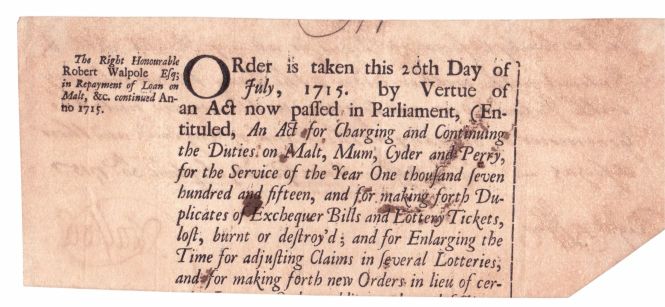 The Right Honourable
Robert Walpole Esq;
in Repayment of Loan on
Malt, &c. continued An-
no 1715.
ORder is taken this 20th Day of
July, 1715. by Vertue of
an Act now paſſed in Parliament, (En-
tituled, An Act for Charging and Continuing
the Duties on Malt, Mum, Cyder and Perry,
for the Service of the Year One thouſand ſeven
hundred and fifteen, and for making forth Du-
plicates of Exchequer Bills and Lottery Tickets,
loſt, burnt or deſtroy'd; and for Enlarging the
Time for adjuſting Claims in ſeveral Lotteries;
and for making forth new Orders in lieu of cer-